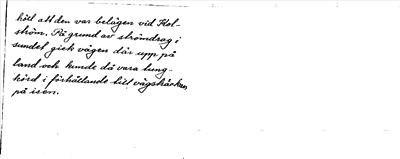 höll att den var belägen vid Hol-
ström. På grund av strömdrag i
sundet gick vägen där upp på
land och kunde då vara tung-
körd i förhållande till vägsträckan
på isen.